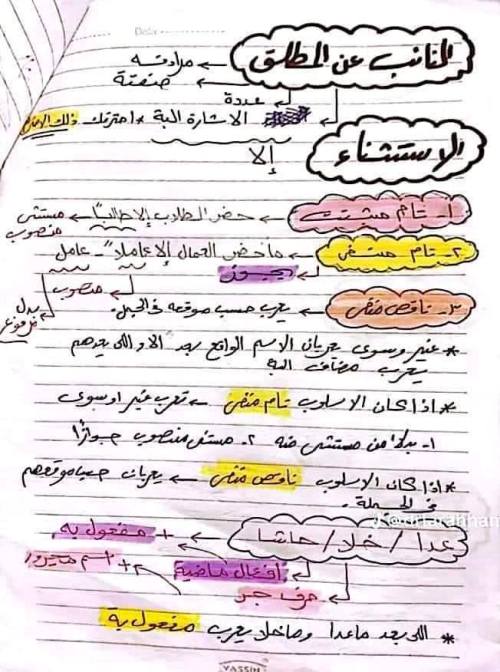 Date
النائب عن المطلق ← مرادفه
صفته
عدده
الاشارة الية * احترمك ذلك الاحترام
الاستثناء
إلا
1- تام مثبت ← حضر الطلاب إلا طالبًا ← مستثنى منصوب
2- تام منفى ← ما حضر العمال إلا عاملاً - عامل
يجوز
منصوب
بدل مرفوع
3- ناقص منفى ← يعرب حسب موقعه فى الجملة.
* غير وسوى يعربان الاسم الواقع بعد إلا واللى بعدهم
يعرب مضاف الية
* اذا كان الاسلوب تام منفى ← تعرب غير او سوى
1- بدلا من مستثنى منه 2- مستثنى منصوب جوازًا
* اذا كان الاسلوب ناقص منفى ← يعربان حسب موقعهم
فى الجملة.
عدا / خلا / حاشا ← + مفعول به
أفعال ماضية
+ اسم مجرور
حرف جر
* اللى بعد ماعدا وماخلا يعرب مفعول بة
YASSIN